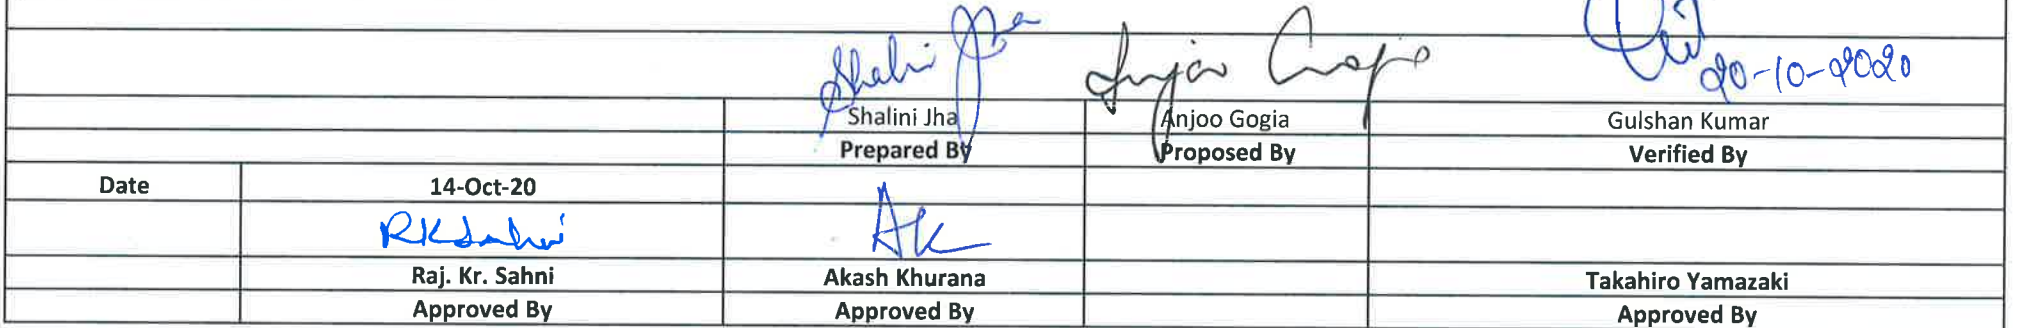 Shalini Jha Anjoo Gogia
20-10-2020
Shalini Jha Anjoo Gogia Gulshan Kumar
Prepared By Proposed By Verified By
Date 14-Oct-20
RKSahni AK
Raj. Kr. Sahni Akash Khurana Takahiro Yamazaki
Approved By Approved By Approved By